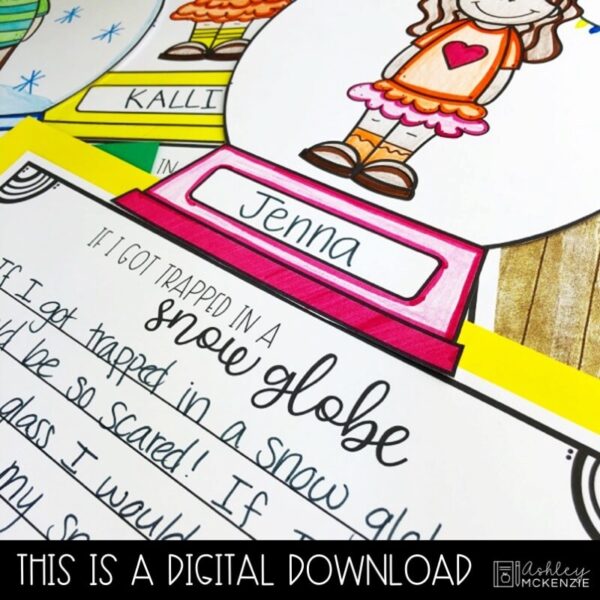 KALLI
IN
Jenna
IF I GOT TRAPPED IN A
snow globe
If I got trapped in a snow
be so scared! If I
glass I would
my
THIS IS A DIGITAL DOWNLOAD
Ashley
MCKENZIE